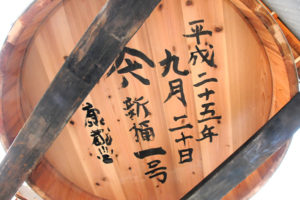 平成二十五年
九月二十日
新桶一号